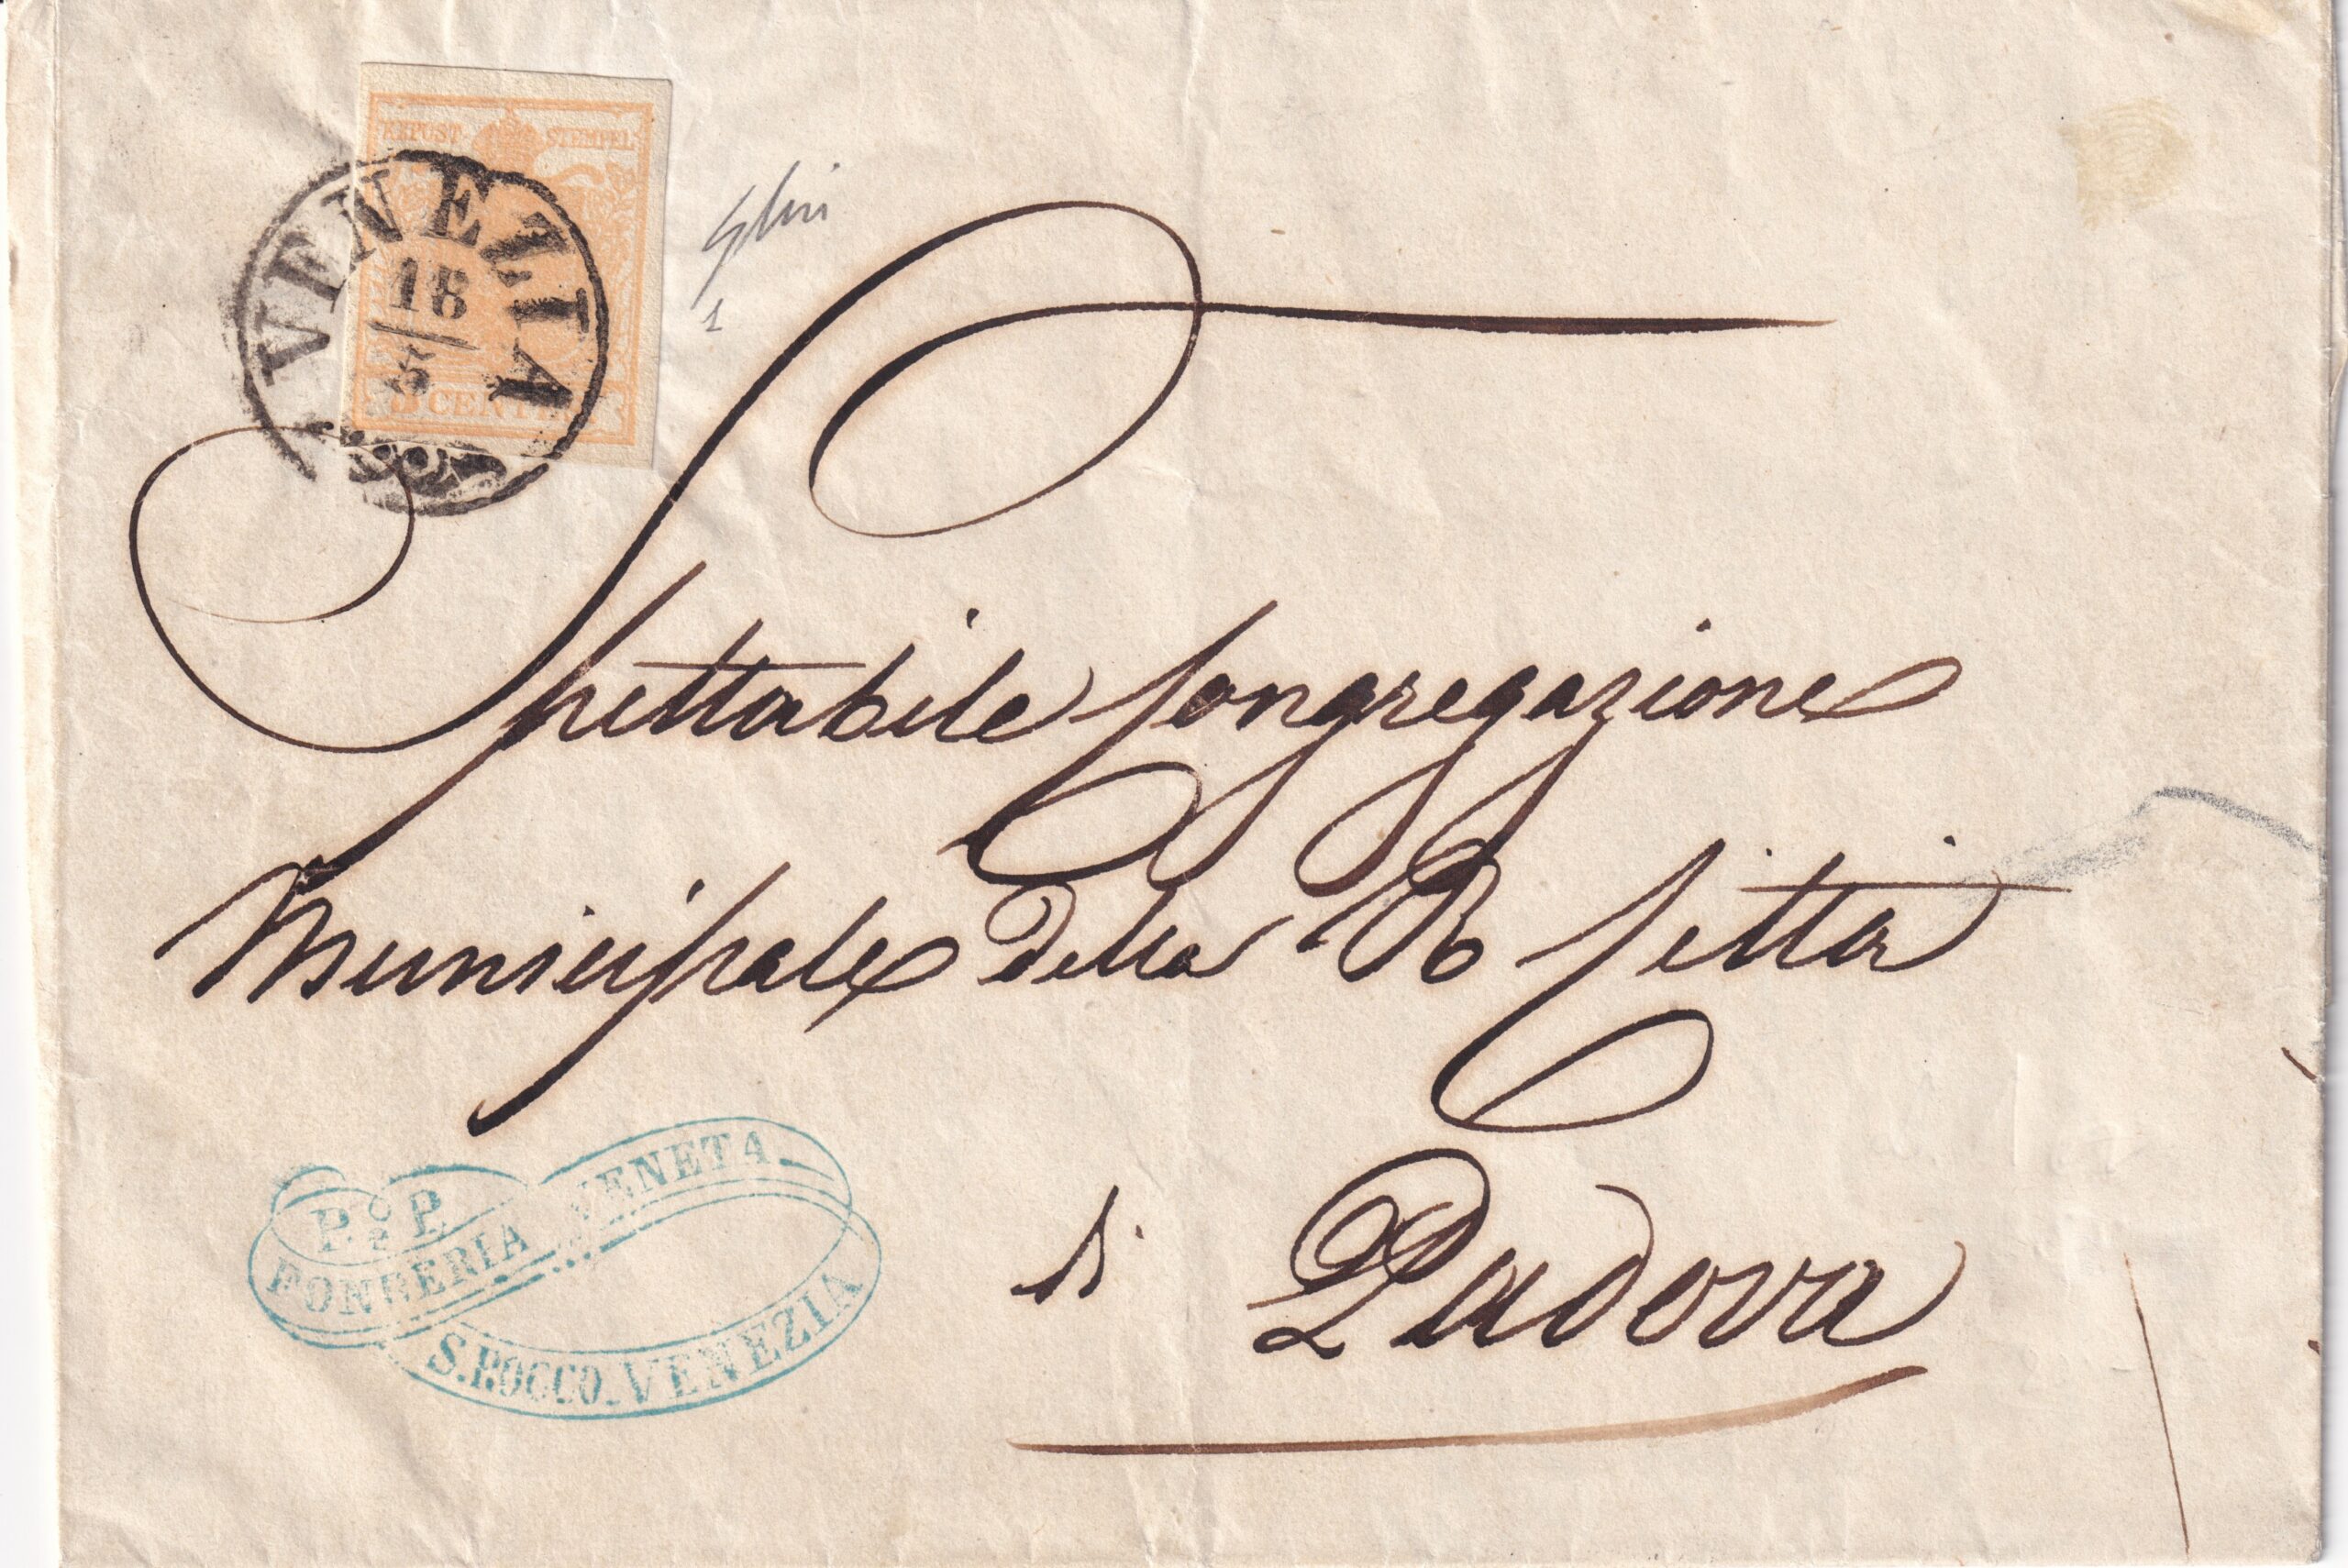 KKPOST-STEMPEL
VENEZIA
18
5
5 CENTES.
1
Spettabile Congregazione
Municipale della R Città
di Padova
P. e P.
FONDERIA VENETA
S. ROCCO. VENEZIA